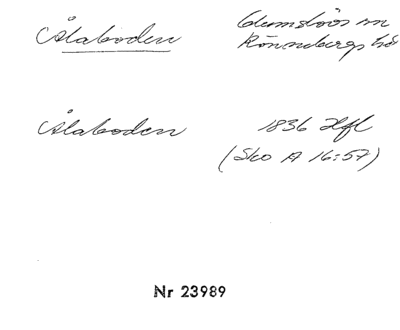 Ålaboden Glumslövs sn
Rönnebergs hd
Ålaboden 1836 Hfl
(Sko A 16:57)
Nr 23989